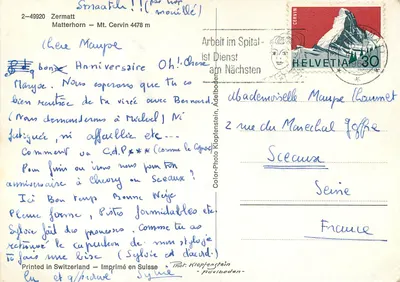 Smaaack!! (pas trop mouillé)
2-49920 Zermatt
Matterhorn - Mt. Cervin 4478 m
Chère
bon Anniversaire Oh! Chère
Nous esperons que tu es
bien rentrée de ta virée avec Bernard
(Nous demanderons à Michel) Ni
fatiguée, ni affaiblie etc...
Comment va C.d.P***
Pour finir ou irons nous pour ton
anniversaire à ou Sceaux?
Ici Bon Temps Bonne Neige
Pleine forme, Pistes formidables etc
Sylvie fait des promesses. Comme tu as
le capuchon de mon stylo je
te fais une bise (Sylvie et
lu et approuvé Sylvie
Printed in Switzerland - Imprimé en Suisse
Phot. Klopfenstein
Adelboden
Color-Photo Klopfenstein, Adelboden
Arbeit im Spital-
ist Dienst
am Nächsten
CERVIN
HELVETIA 30
Mademoiselle
2 rue du Marechal Joffre
Sceaux
Seine
France